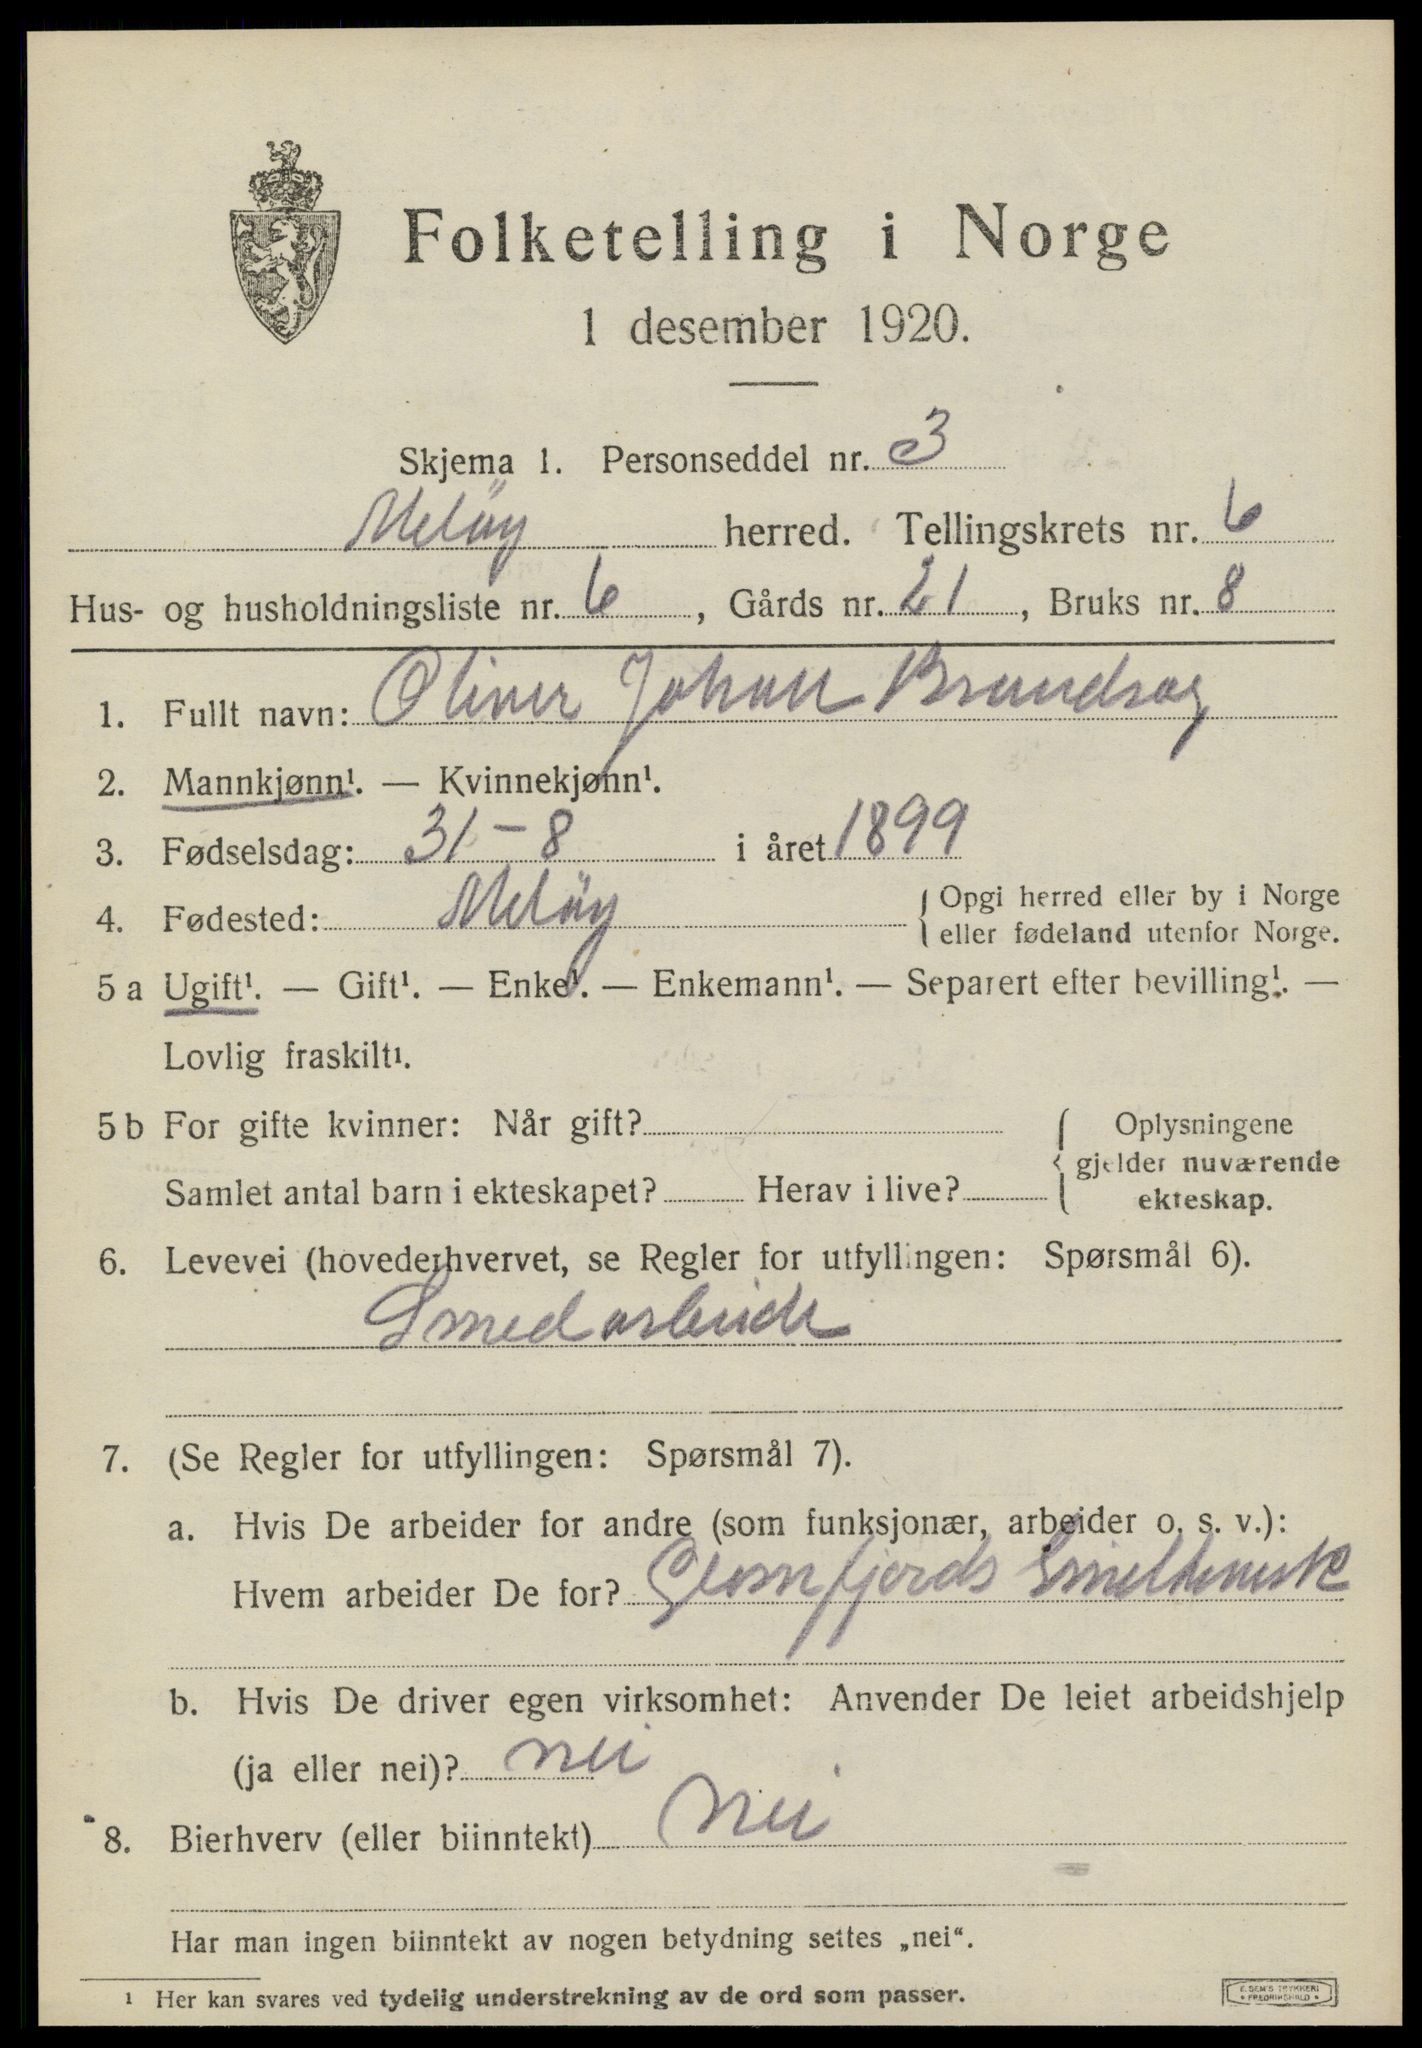 Folketelling i Norge
1 desember 1920.
Skjema 1. Personseddel nr. 3
Meløy herred. Tellingskrets nr. 6
Hus- og husholdningsliste nr. 6, Gårds nr. 21, Bruks nr. 8
1. Fullt navn: Oliver Johan
2. Mannkjønn¹. — Kvinnekjønn¹.
3. Fødselsdag: 31-8 i året 1899
4. Fødested: Meløy { Opgi herred eller by i Norge
eller fødeland utenfor Norge.
5 a Ugift¹. — Gift¹. — Enke¹. — Enkemann¹. — Separert efter bevilling¹. —
Lovlig fraskilt¹.
5 b For gifte kvinner: Når gift? { Oplysningene
gjelder nuværende
Samlet antal barn i ekteskapet? Herav i live?
ekteskap.
6. Levevei (hovederhvervet, se Regler for utfyllingen: Spørsmål 6).
Smedarbeide
7. (Se Regler for utfyllingen: Spørsmål 7).
a. Hvis De arbeider for andre (som funksjonær, arbeider o. s. v.):
Hvem arbeider De for? Glomfjords Smelteverk
b. Hvis De driver egen virksomhet: Anvender De leiet arbeidshjelp
(ja eller nei)? nei
8. Bierhverv (eller biinntekt) Nei
Har man ingen biinntekt av nogen betydning settes „nei“.
¹ Her kan svares ved tydelig understrekning av de ord som passer.
E. SEM'S TRYKKERI
• FREDRIKSHALD •